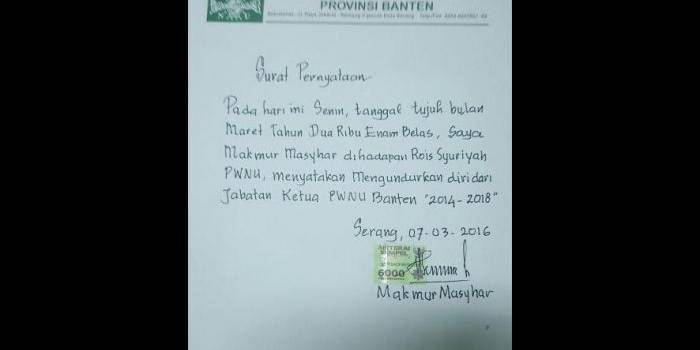 PROVINSI BANTEN
Surat Pernyataan
Pada hari ini Senin, tanggal tujuh bulan
Maret Tahun Dua Ribu Enam Belas, Saya
Makmur Masyhar dihadapan Rois Syuriyah
PWNU, menyatakan Mengundurkan diri dari
Jabatan Ketua PWNU Banten "2014-2018"
Serang, 07-03-2016
METERAI
TEMPEL
6000
Makmur Masyhar